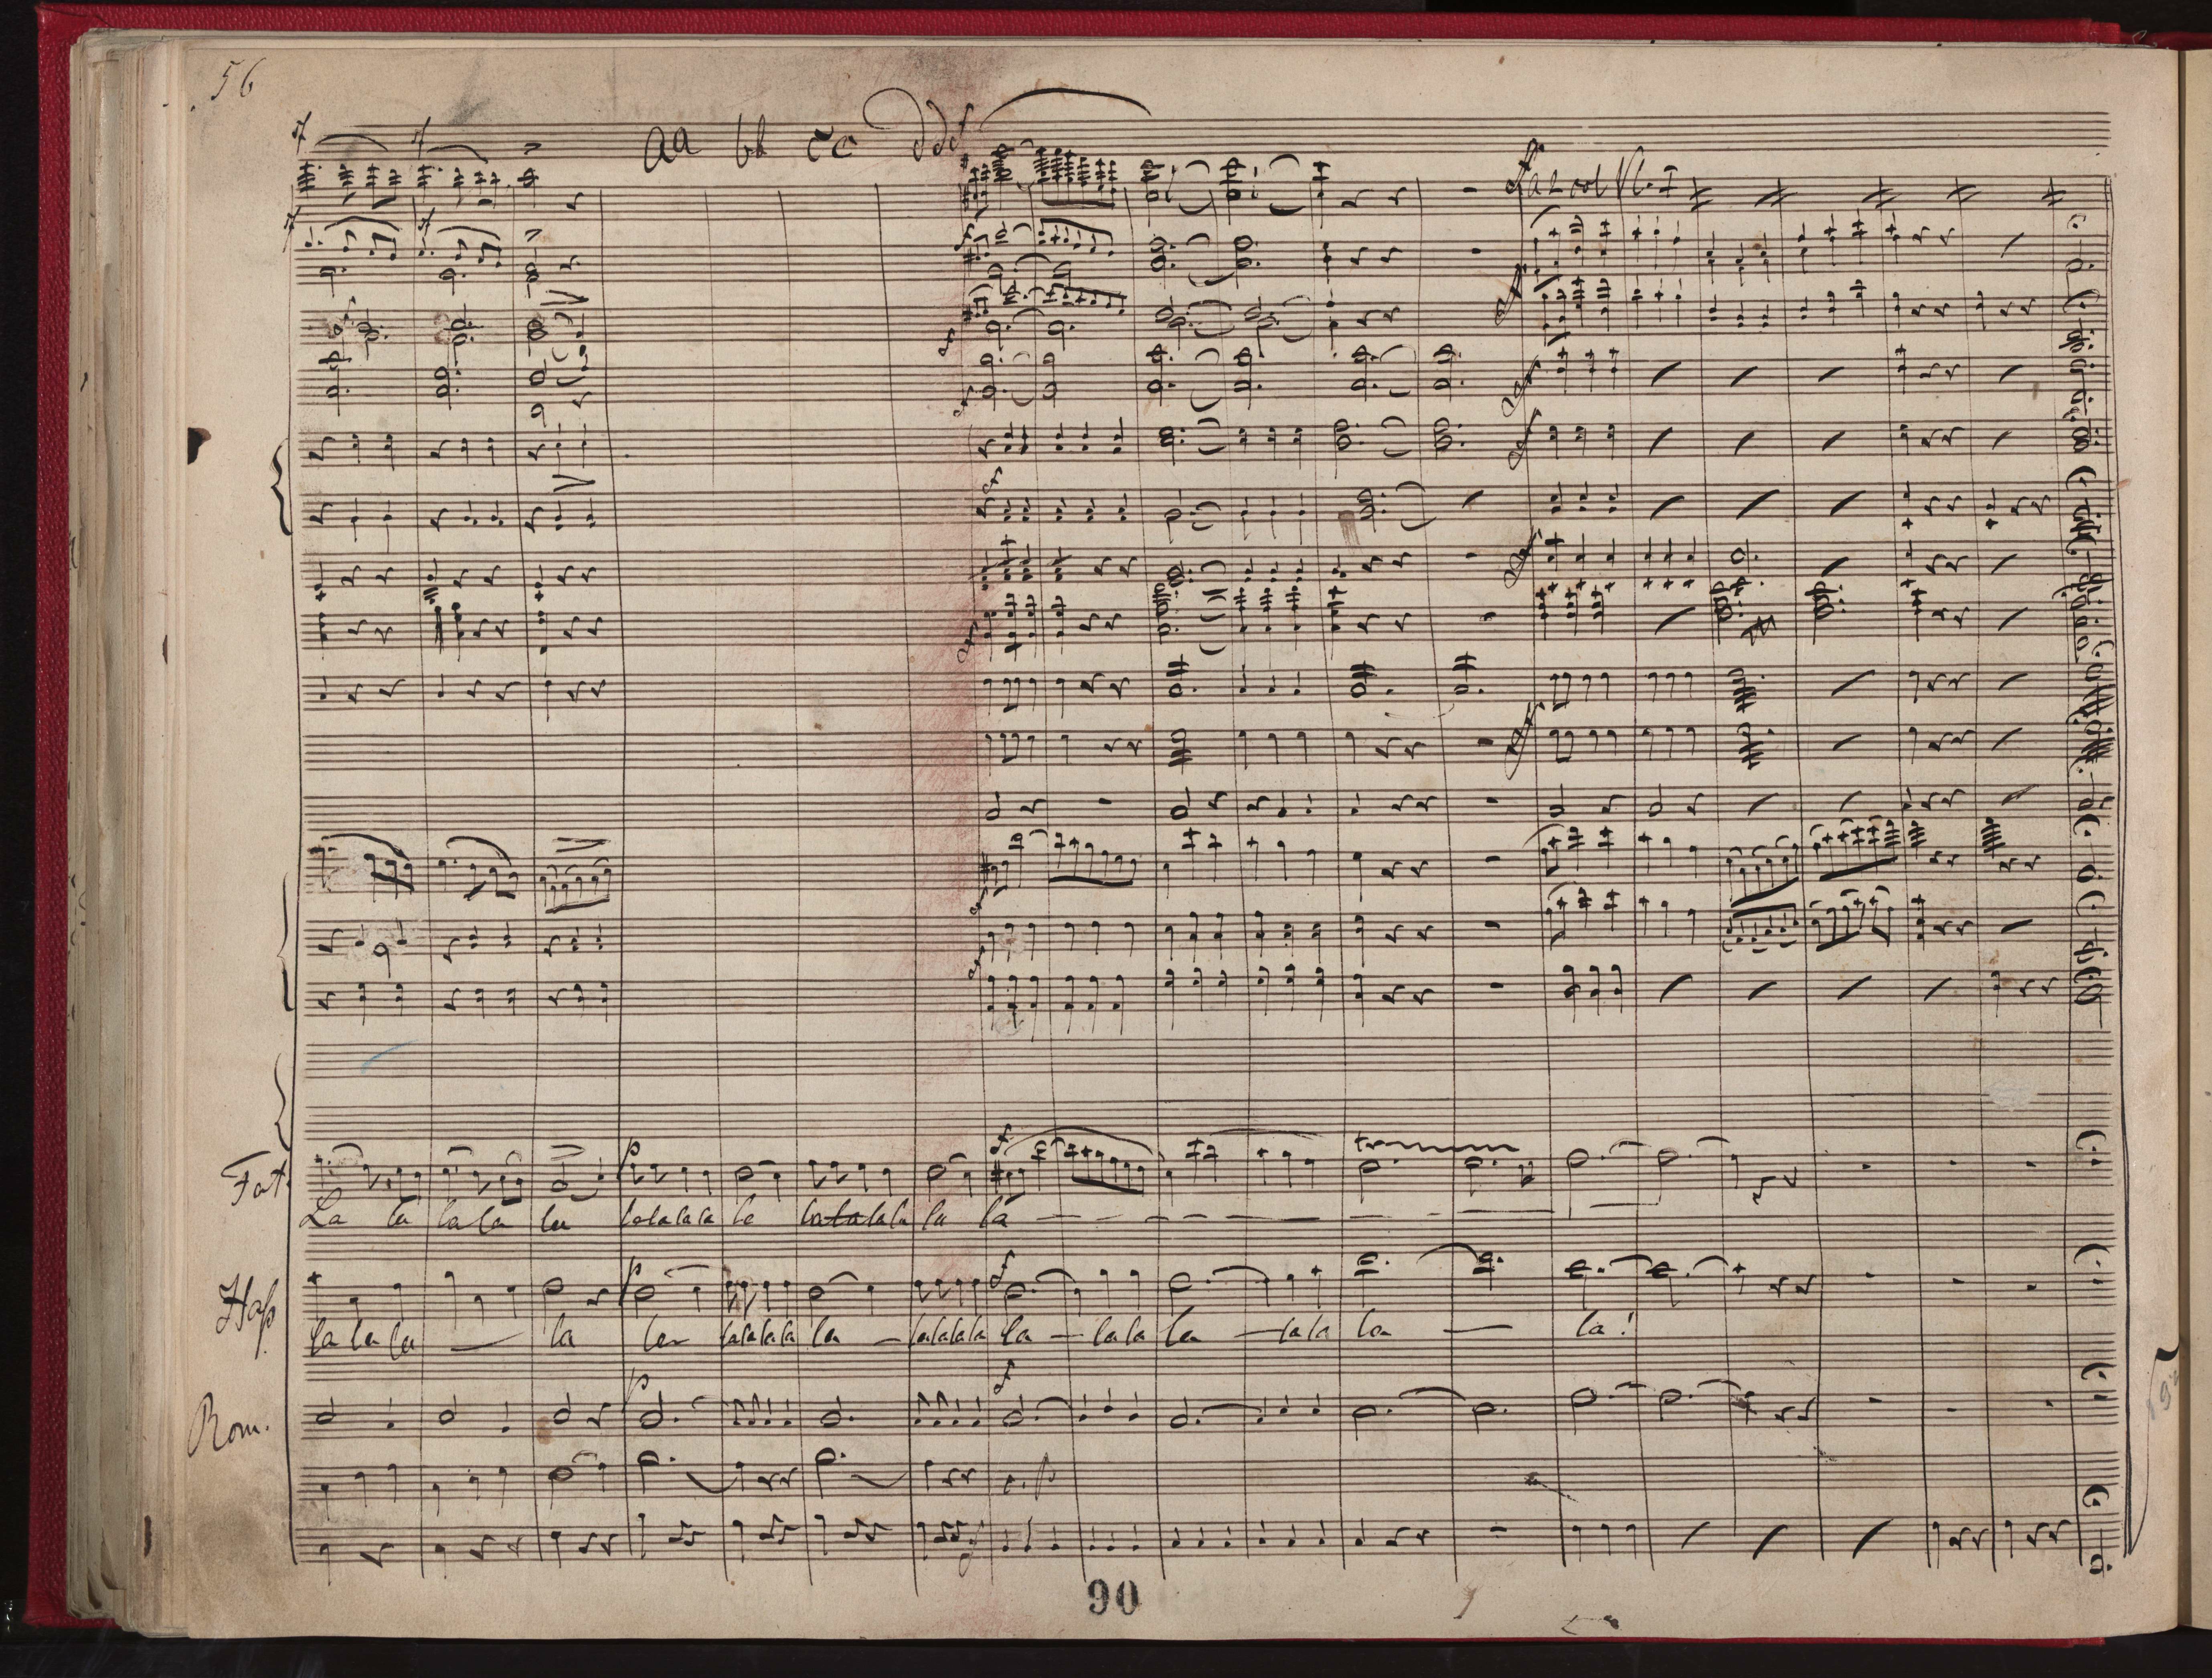 56
aa bb cc ddd
f
Fat.
La la la la la lalalala la lalalala la la
p
f
la la la la la lalalala la lalalala la lala la lala la la!
p
f
Rom.
p
f
90